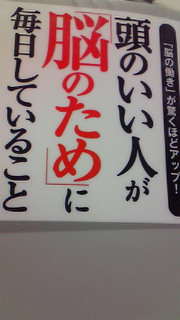 「脳の働き」が驚くほどアップ！
頭のいい人が
「脳のため」に
毎日していること